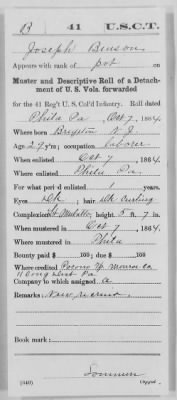 B 41 U.S.C.T.
Joseph Benson
Appears with rank of pvt on
Muster and Descriptive Roll of a Detach-
ment of U. S. Vols. forwarded
for the 41 Reg't U. S. Col'd Infantry. Roll dated
Phila Pa Oct 7, 1864.
Where born Bridgeton N. J.
Age 29 y'rs; occupation laborer
When enlisted Oct 7, 1864.
Where enlisted Phila Pa.
For what period enlisted 1 years.
Eyes Dk; hair curling
Complexion Mulatto; height 5 ft. 7 in.
When mustered in Oct 7, 1864.
Where mustered in Phila
Bounty paid $ 100; due $ 100
Where credited Pocono Tp. Monroe co
11 Cong Dist Pa
Company to which assigned a
Remarks: New recruit
Book mark:
(340) Copyist.